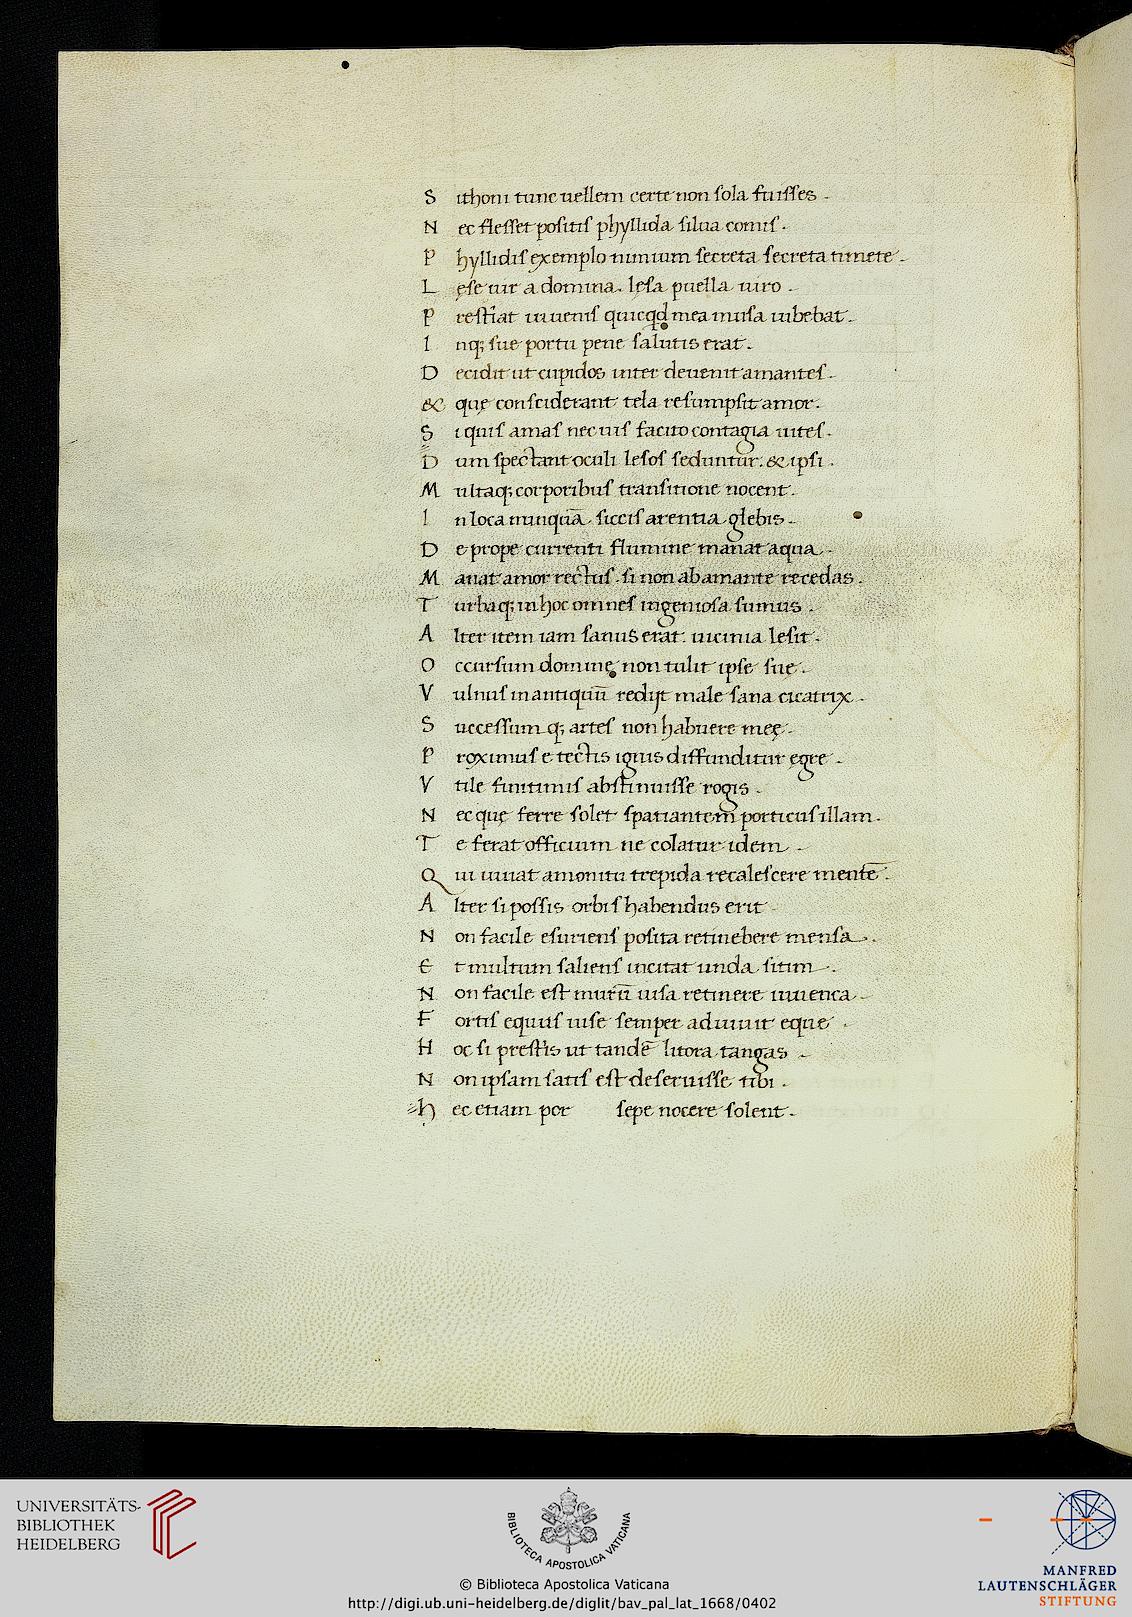 S ithoni tunc uellem certe non sola fuisses .
N ec flesset positis phyllida silua comis .
P hyllidis exemplo nimium secreta secreta timete .
L ęse uir a domina . lęsa puella uiro .
P restiat iuuenis quicqd mea musa iubebat .
I nq; sue portu pene salutis erat .
D ecidit ut cupidos inter deuenit amantes .
& quę consciderant tela resumpsit amor .
S i quis amas nec uis facito contagia uites .
D um spectant oculi lesos seduntur . & ipsi .
M ultaq; corporibus transitione nocent .
I n loca nunquā siccis arentia glebis .
D e prope currenti flumine manat aqua .
M anat amor rectus . si non ab amante recedas .
T urbaq; in hoc omnes ingeniosa sumus .
A lter item iam sanus erat . uicinia lesit .
O ccursum dominę non tulit ipse suę .
V ulnus in antiquū redijt male sana cicatrix .
S uccessum q; artes non habuere meę .
P roximus e tectis ignis diffunditur ęgre .
V tile finitimis abstinuisse rogis .
N ec quę ferre solet spatiantem porticus illam .
T e ferat officium ne colatur idem .
Q ui uiuat amonitu trepida recalescere mentē .
A lter si possis orbis habendus erit
N on facile esuriens posita retinebere mensa .
E t multum saliens incitat unda sitim .
N on facile est murū uisa retinere iuuenca .
F ortis equus uise semper adiuuit eque .
H oc si prestis ut tandē litora tangas .
N on ipsam satis est deseruisse tibi .
h ec etiam por sepe nocere solent .
UNIVERSITÄTS-
BIBLIOTHEK
HEIDELBERG
BIBLIOTECA APOSTOLICA VATICANA
© Biblioteca Apostolica Vaticana
http://digi.ub.uni-heidelberg.de/diglit/bav_pal_lat_1668/0402
MANFRED
LAUTENSCHLÄGER
STIFTUNG